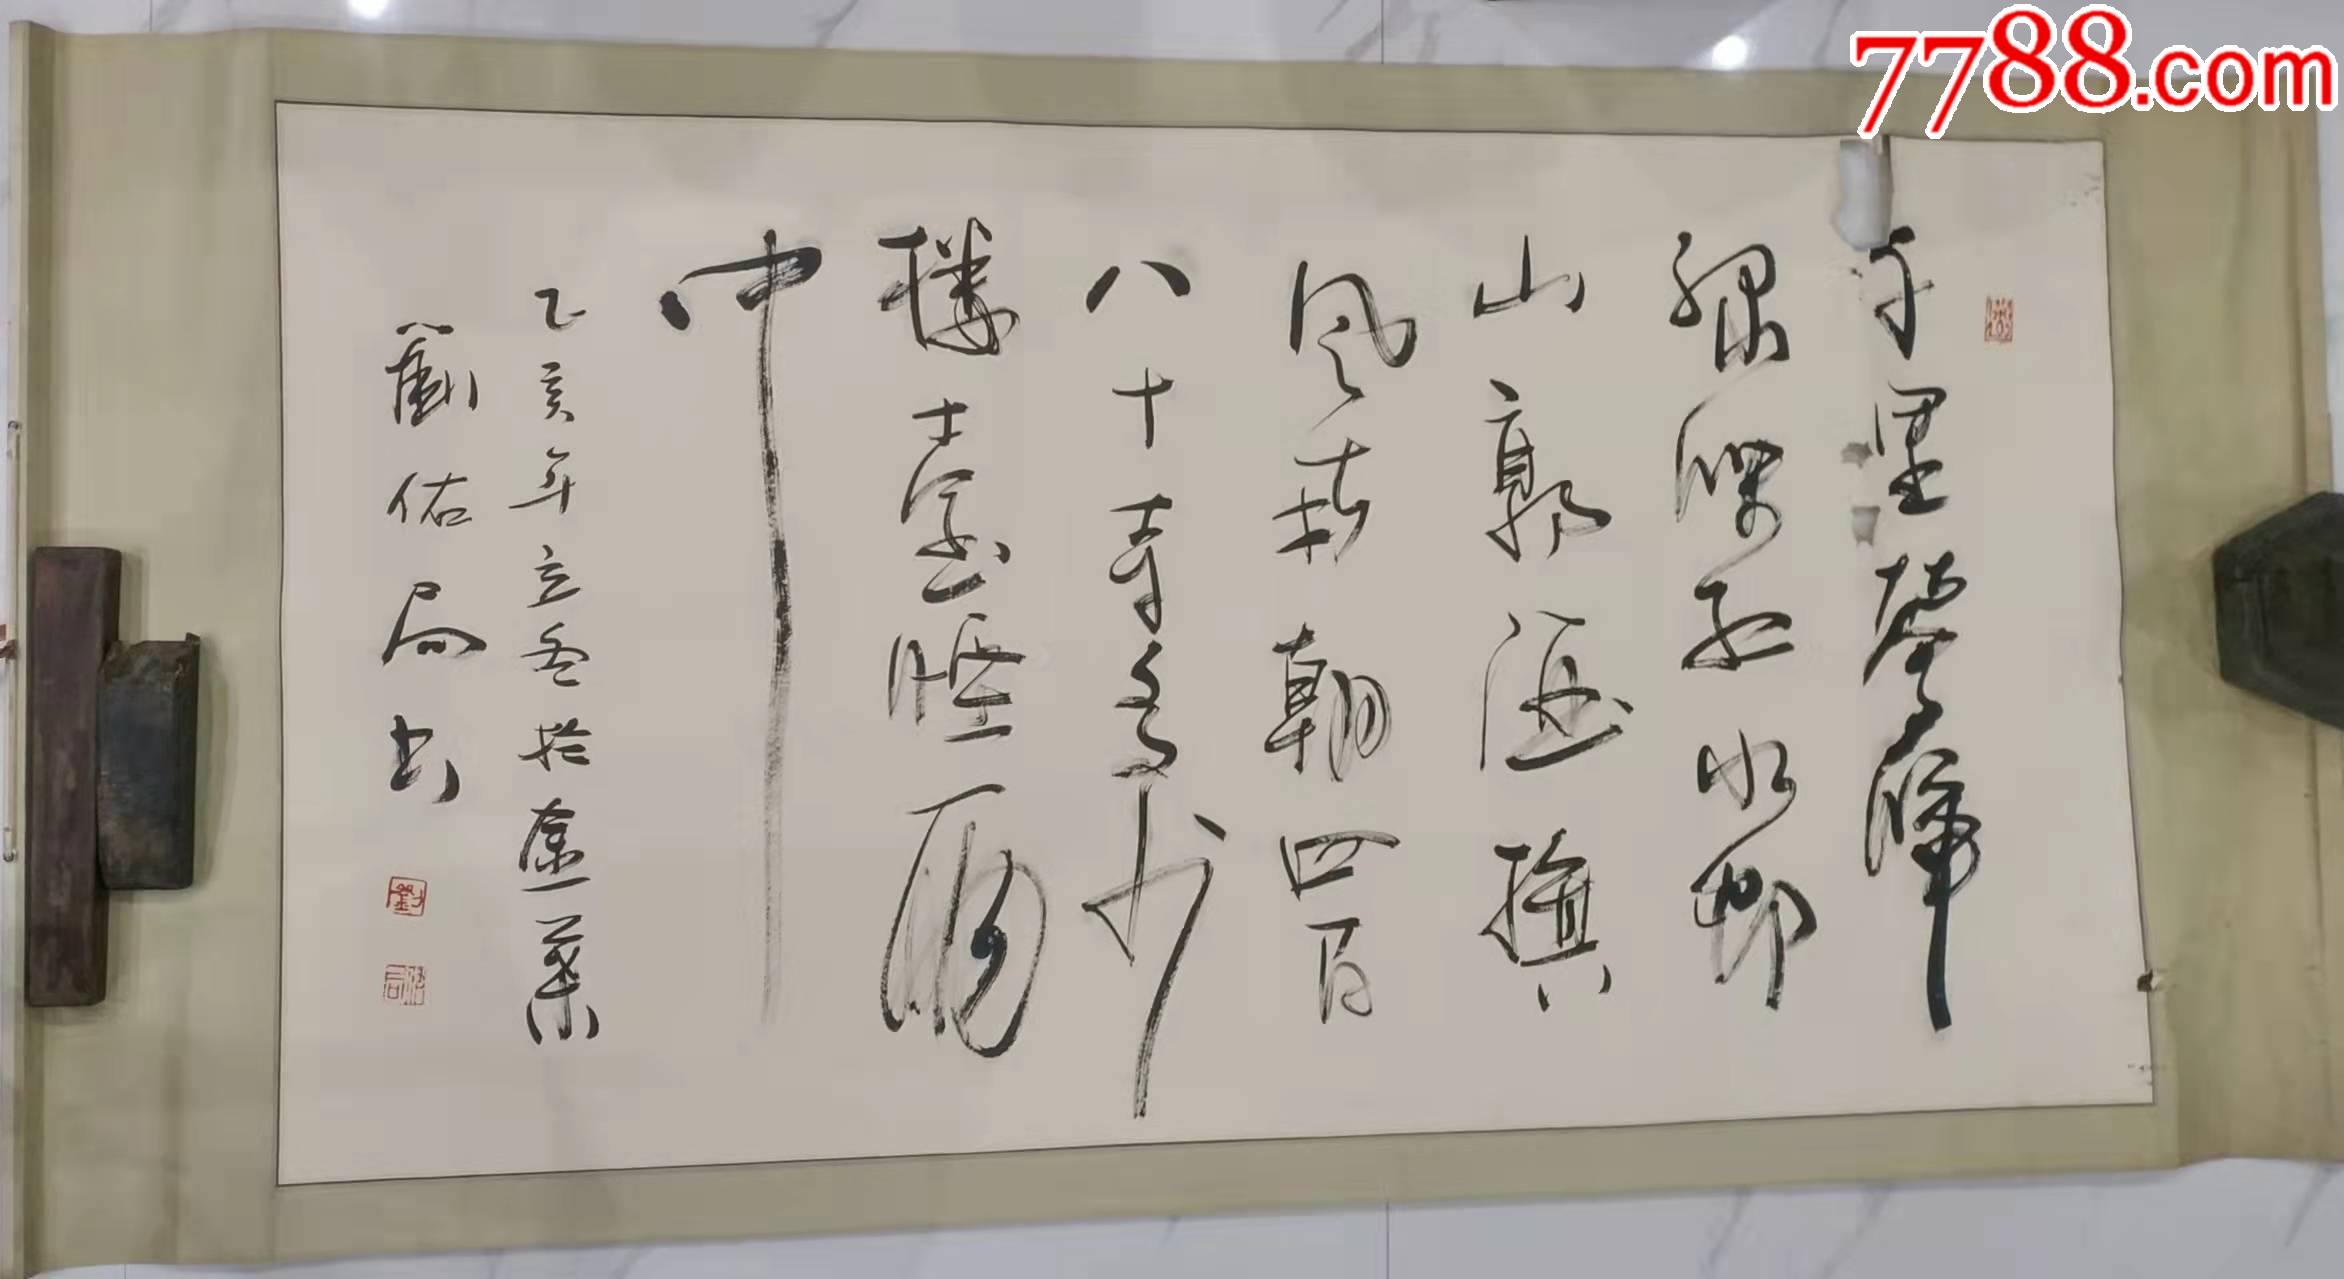 7788.com
千里鶯啼
綠映紅水邨
山郭酒旗
風南朝四百
八十寺多少
樓臺煙雨
中
乙亥年立於
劉佑局书
劉